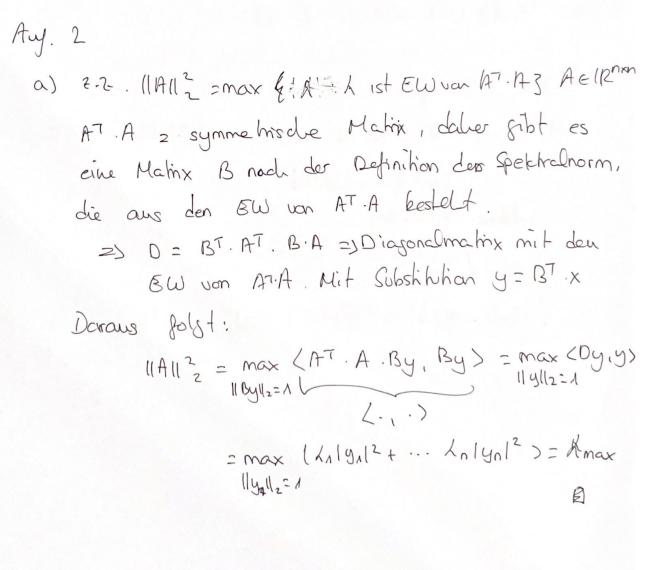 Auf. 2
a) z.z. ||A||₂² = max { λ : λ ist EW von Aᵀ·A} A∈ℝⁿˣⁿ
Aᵀ·A = symmetrische Matrix, daher gibt es
eine Matrix B nach der Definition der Spektralnorm,
die aus den EW von Aᵀ·A besteht.
=> D = Bᵀ·Aᵀ·B·A => Diagonalmatrix mit den
EW von Aᵀ·A. Mit Substitution y = Bᵀ·x
Daraus folgt:
||A||₂² = max <Aᵀ·A·By, By> = max <Dy,y>
||By||₂=1 ||y||₂=1
<·,·>
= max (λ₁|y₁|² + ··· λn|yn|²) = λmax
||y||₂=1